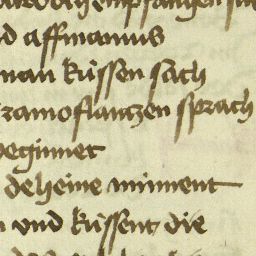 empfangen
d affinamus
man küssen sach
zamoflantzen sprach
beginnet
deheine minnent
vnd küssent die